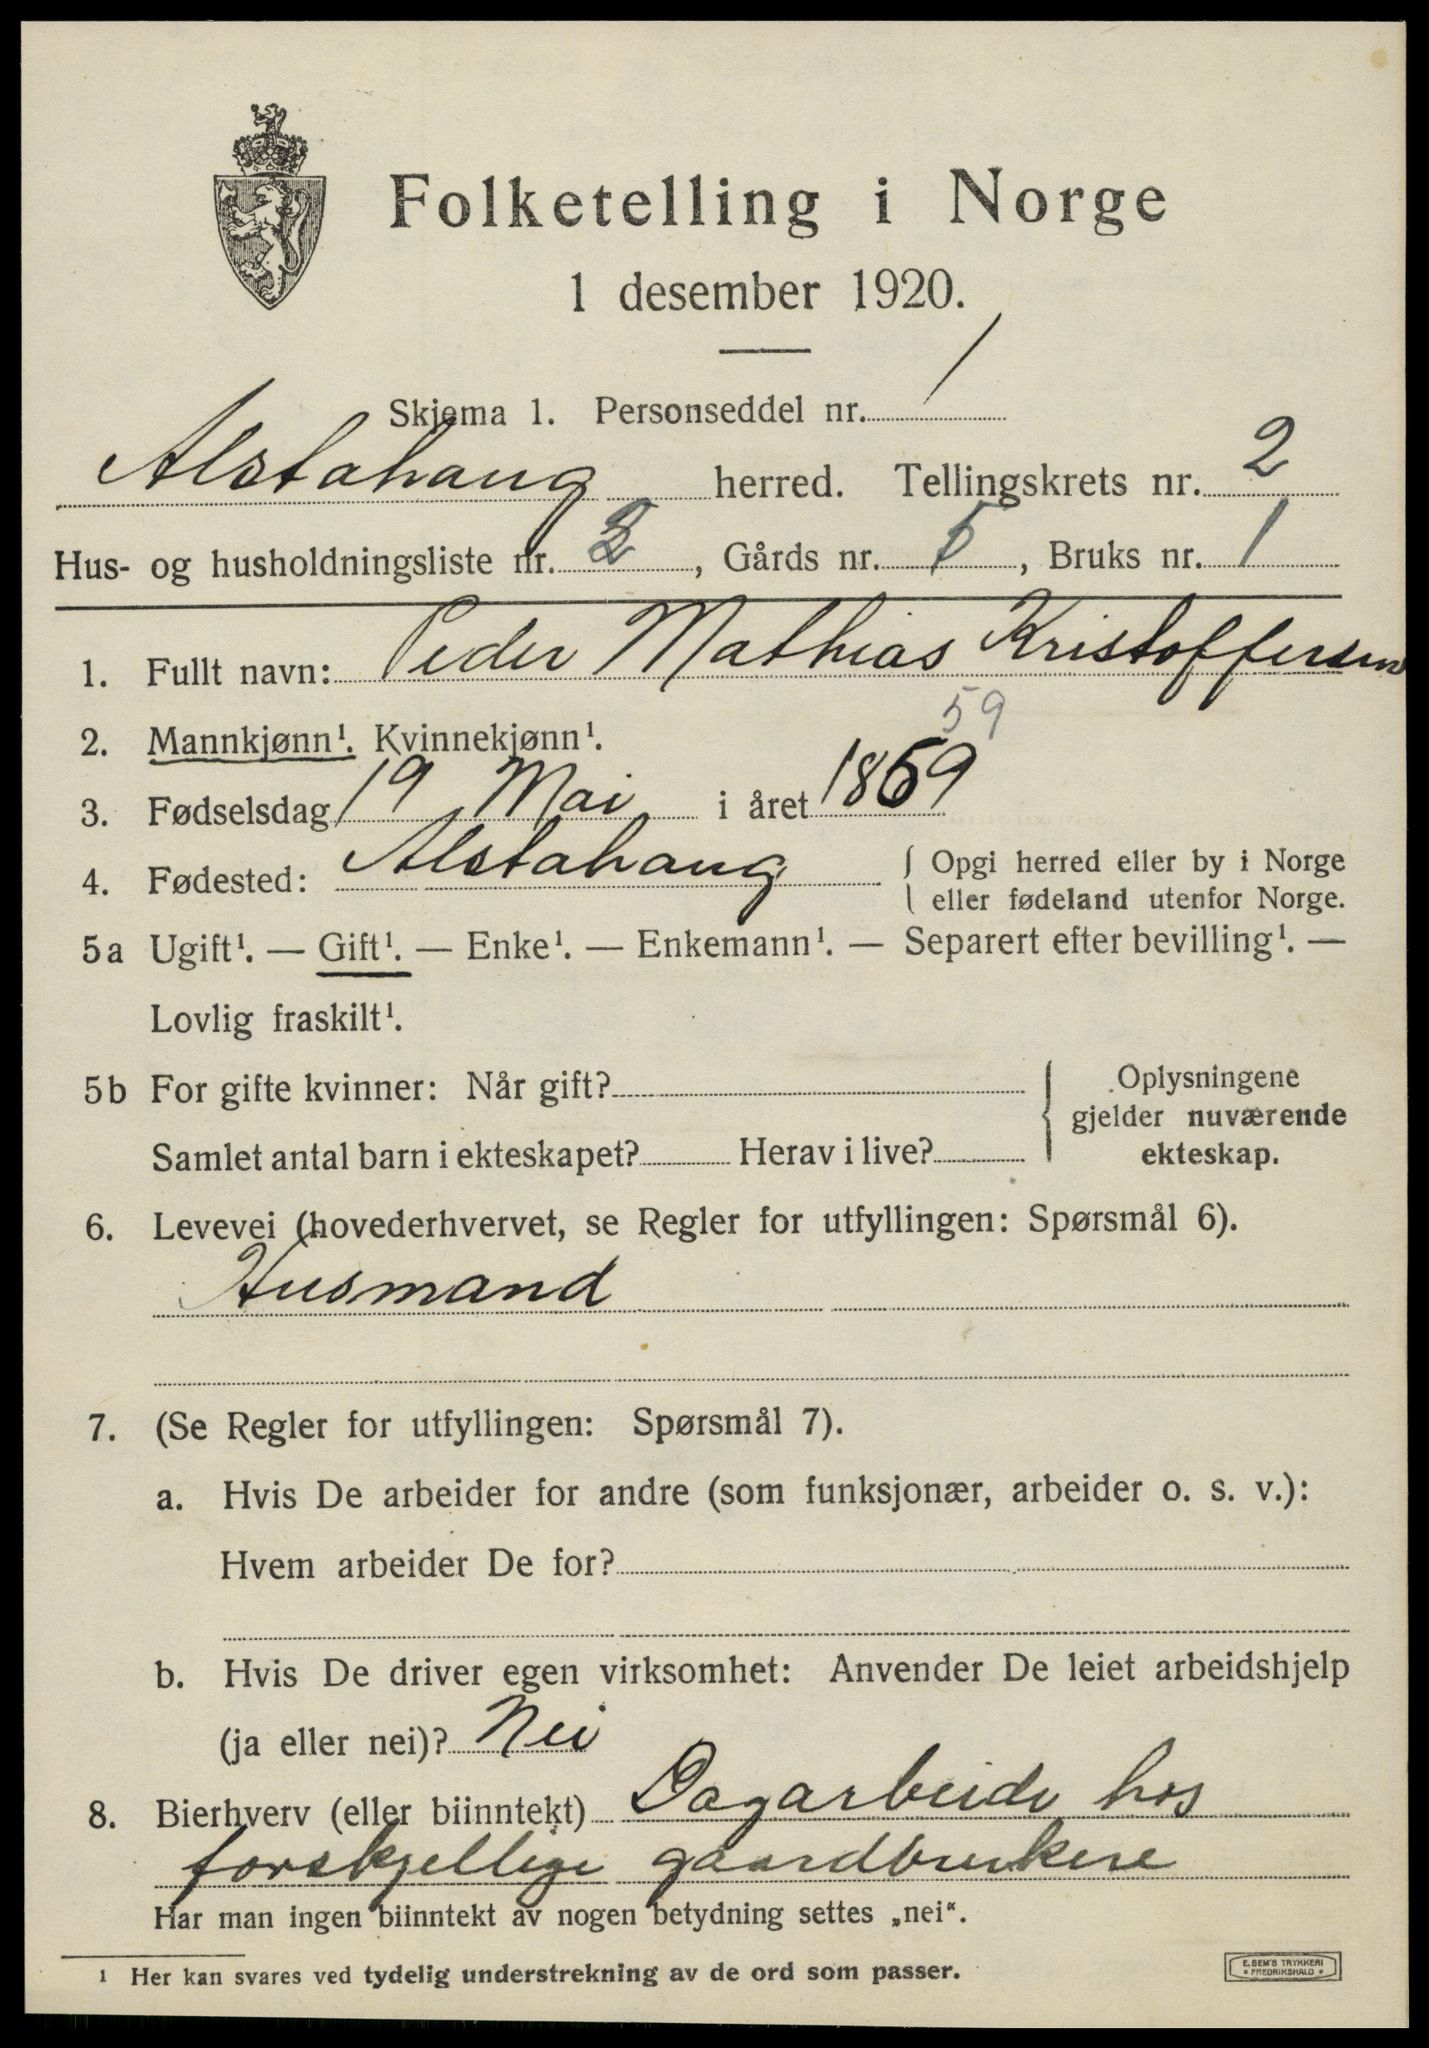 Folketelling i Norge
1 desember 1920.
Skjema 1. Personseddel nr. 1
Alstahaug herred. Tellingskrets nr. 2
Hus- og husholdningsliste nr. 2, Gårds nr. 5, Bruks nr. 1
1. Fullt navn: Peder Mathias Kristoffersen
2. Mannkjønn¹. Kvinnekjønn¹. 59
3. Fødselsdag 19 Mai i året 1859
4. Fødested: Alstahaug { Opgi herred eller by i Norge
eller fødeland utenfor Norge.
5a Ugift¹. — Gift¹. — Enke¹. — Enkemann¹. — Separert efter bevilling¹. —
Lovlig fraskilt¹.
5b For gifte kvinner: Når gift? { Oplysningene
gjelder nuværende
Samlet antal barn i ekteskapet? Herav i live? ekteskap.
6. Levevei (hovederhvervet, se Regler for utfyllingen: Spørsmål 6).
Husmand
7. (Se Regler for utfyllingen: Spørsmål 7).
a. Hvis De arbeider for andre (som funksjonær, arbeider o. s. v.):
Hvem arbeider De for?
b. Hvis De driver egen virksomhet: Anvender De leiet arbeidshjelp
(ja eller nei)? Nei
8. Bierhverv (eller biinntekt) Dagarbeide hos
forskjellige gaardbrukere
Har man ingen biinntekt av nogen betydning settes „nei“.
¹ Her kan svares ved tydelig understrekning av de ord som passer.
E. SEM'S TRYKKERI
FREDRIKSHALD